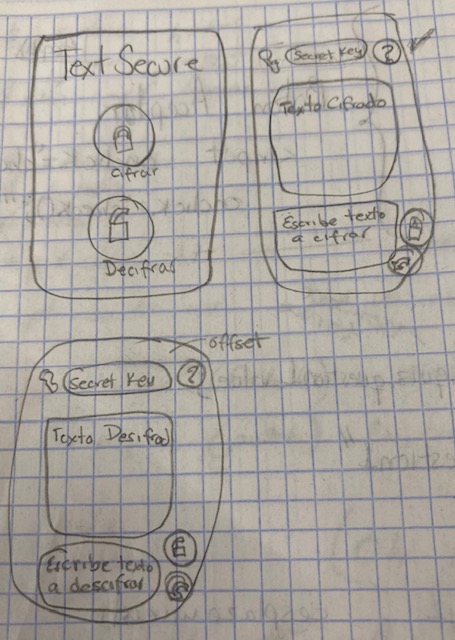 Text Secure
cifrar
Decifrar
Secret Key ?
Texto Cifrado
Escribe texto
a cifrar
offset
Secret Key ?
Texto Desifrad
Escribe texto
a descifrar